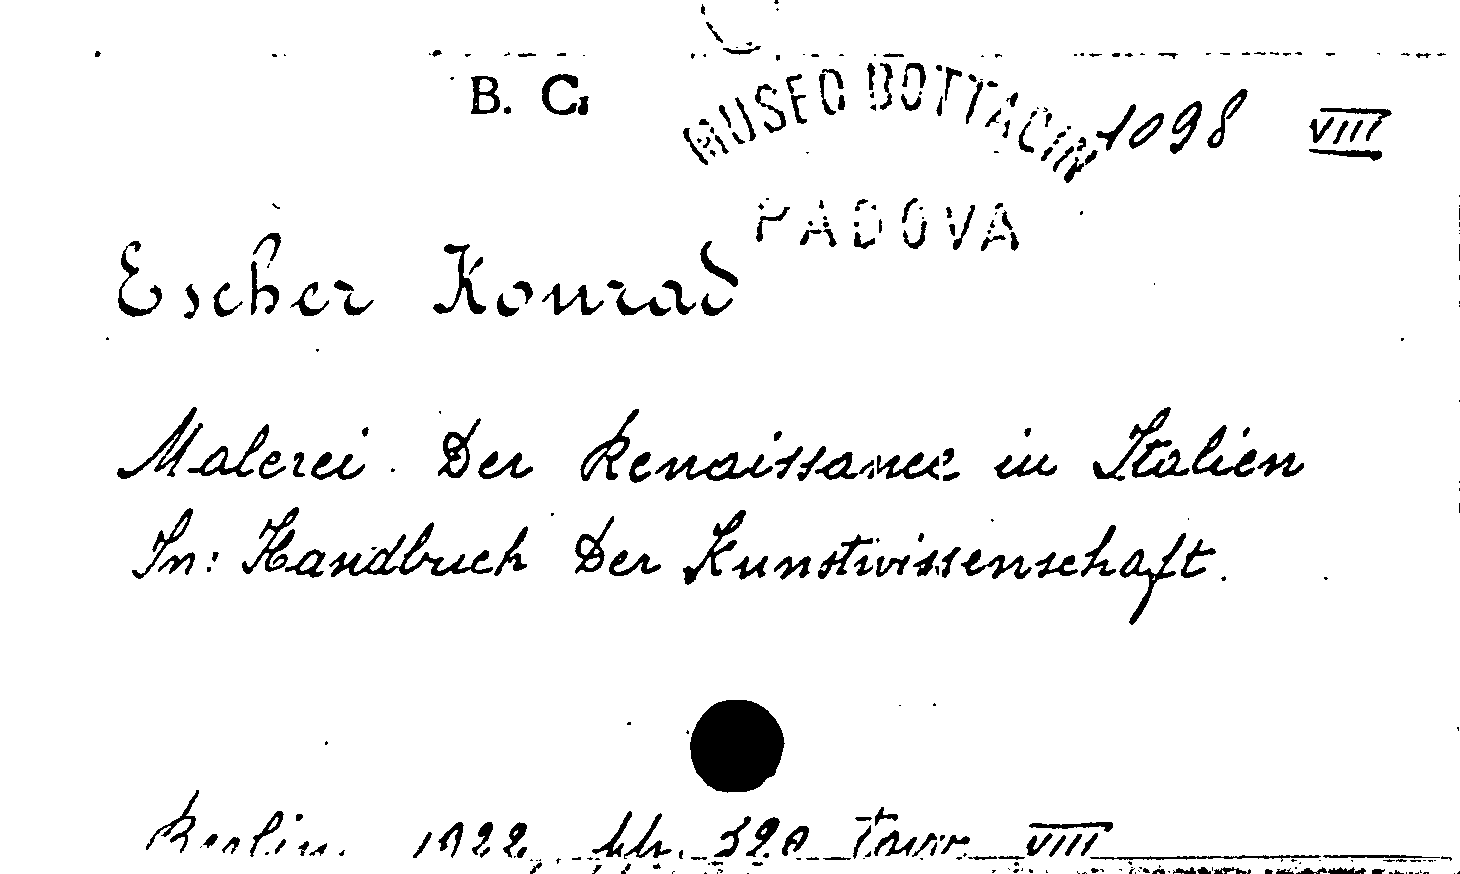 B. C.
MUSEO BOTTACIN
PADOVA
1098 VIII
Escher Konrad
Malerei Der Renaissance in Italien
In: Handbuch Der Kunstwissenschaft.
Berlin. 1922, pp. 320 Tavv. VIII